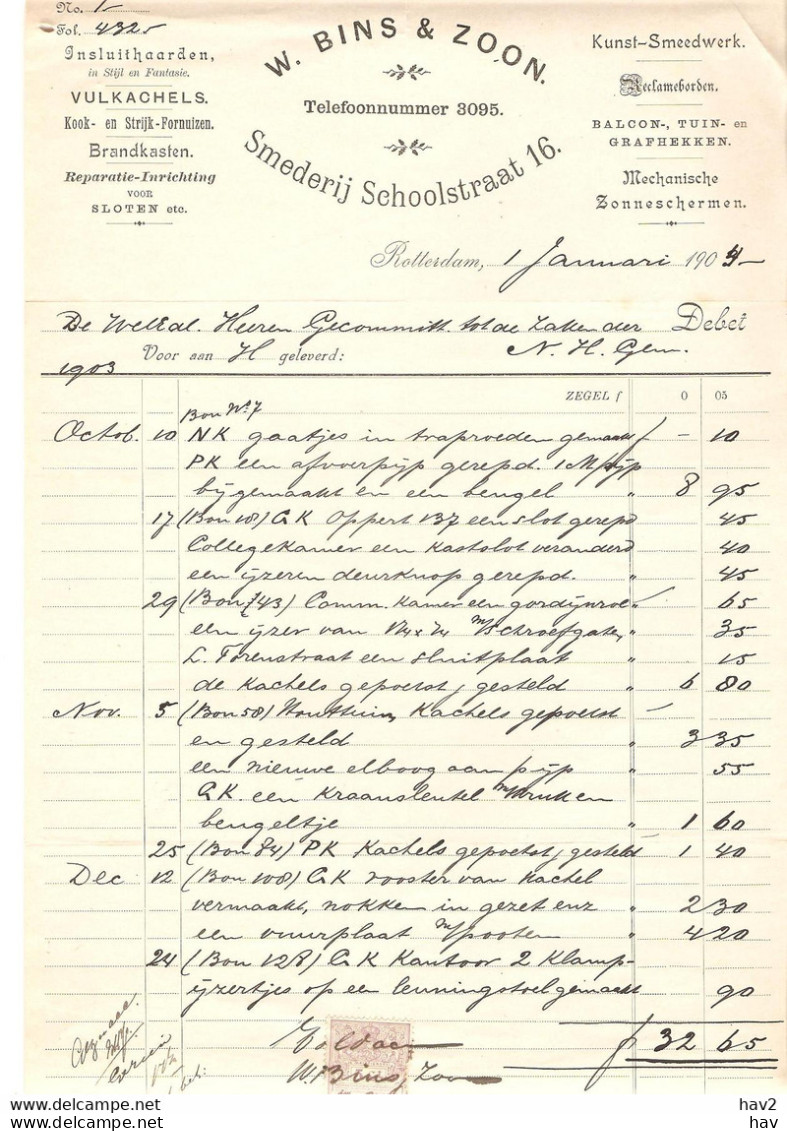 No. 1
Fol. 4325
Insluithaarden,
in Stijl en Fantasie.
VULKACHELS.
Kook- en Strijk-Fornuizen.
Brandkasten.
Reparatie-Inrichting
VOOR
SLOTEN etc.
W. BINS & ZOON.
Telefoonnummer 3095.
Smederij Schoolstraat 16.
Kunst-Smeedwerk.
Reclameborden.
BALCON-, TUIN- en
GRAFHEKKEN.
Mechanische
Zonneschermen.
Rotterdam, 1 Januari 1904
De WelEd. Heeren Gecommitt. tot de zaken der Debet
N. H. Gem.
1903 Voor aan H geleverd:
ZEGEL f 0 05
Bon No. 7
Octob. 10 NK gaatjes in traproeden gemaakt f - 10
PK een afvoerpijp gerepd. 1 M pijp
bijgemaakt en een beugel " 8 95
17 (Bon 18) GK Oppert 137 een slot gerepd 45
Collegekamer een kastslot veranderd 40
een ijzeren deurknop gerepd. " 45
29 (Bon 43) Comm. kamer een gordijnroe " 65
een ijzer van 1/4 x 7/4 m/schroefgaten " 35
L. Torenstraat een sluitplaat " 15
de kachels gepoetst, gesteld " 6 80
Nov. 5 (Bon 58) Houttuin, Kachels gepoetst
en gesteld " 3 35
een nieuwe elboog aan pijp " 55
GK. een Kraansleutel m/ en
beugeltje " 1 60
25 (Bon 84) PK Kachels gepoetst, gesteld 1 40
Dec 12 (Bon 108) GK rooster van kachel
vermaakt, nokken in gezet enz " 2 30
een vuurplaat m/pooten " 4 20
24 (Bon 128) GK Kantoor 2 Klamp-
ijzertjes op een leuningstoel gemaakt 90
f 32 65
Voldaan
W. Bins, Zoon
hav2
hav